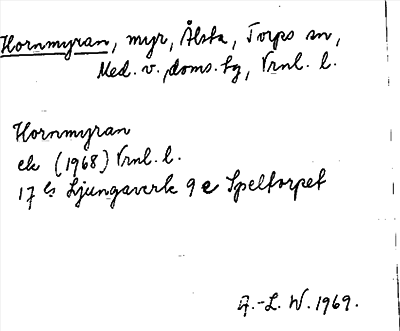 Hornmyran, myr, Ålsta, Torps sn,
Med. v. doms. tg, Vrnl. l.
Hornmyran
ek (1968) Vrnl. l.
17 Ljungaverk 9 e Speltorpet
A.-L. W. 1969.